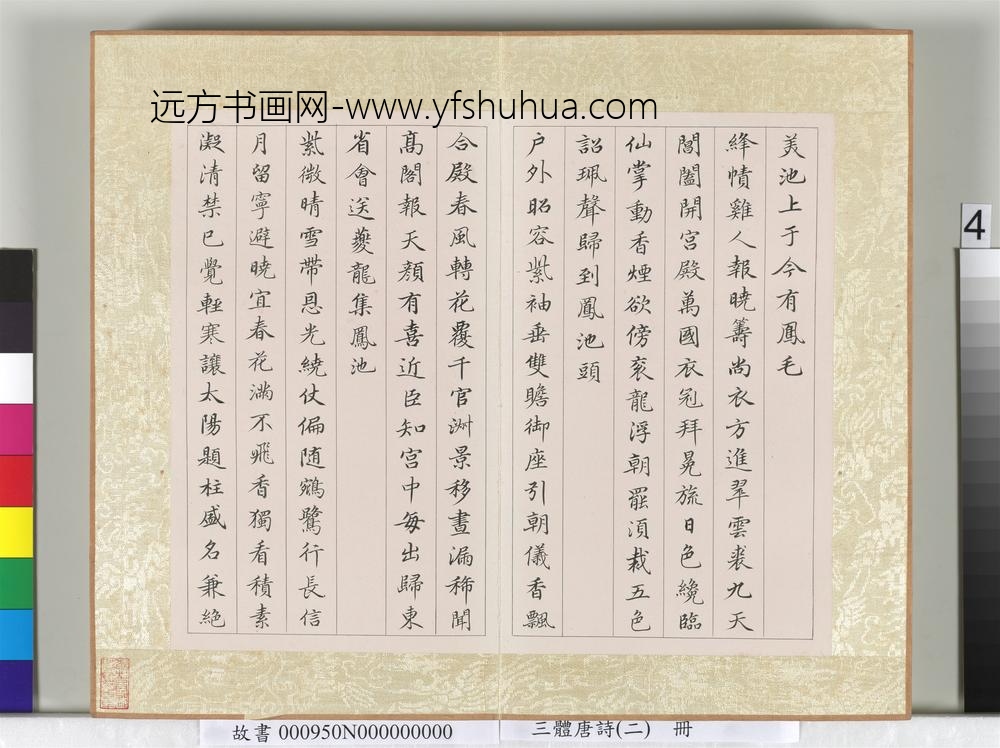 远方书画网-www.yfshuhua.com
美池上于今有鳳毛
絳幘雞人報曉籌尚衣方進翠雲裘九天
閶闔開宮殿萬國衣冠拜冕旒日色纔臨
仙掌動香煙欲傍衮龍浮朝罷湏裁五色
詔珮聲歸到鳳池頭
戶外昭容紫袖垂雙瞻御座引朝儀香飄
合殿春風轉花覆千官淑景移晝漏稀聞
高閣報天顏有喜近臣知宮中每出歸東
省會送夔龍集鳳池
紫微晴雪帶恩光繞仗偏随鵷鷺行長信
月留寧避曉宜春花滿不飛香獨看積素
凝清禁已覺輕寒讓太陽題柱盛名兼絕
4
故書 000950N000000000
三體唐詩(二) 冊